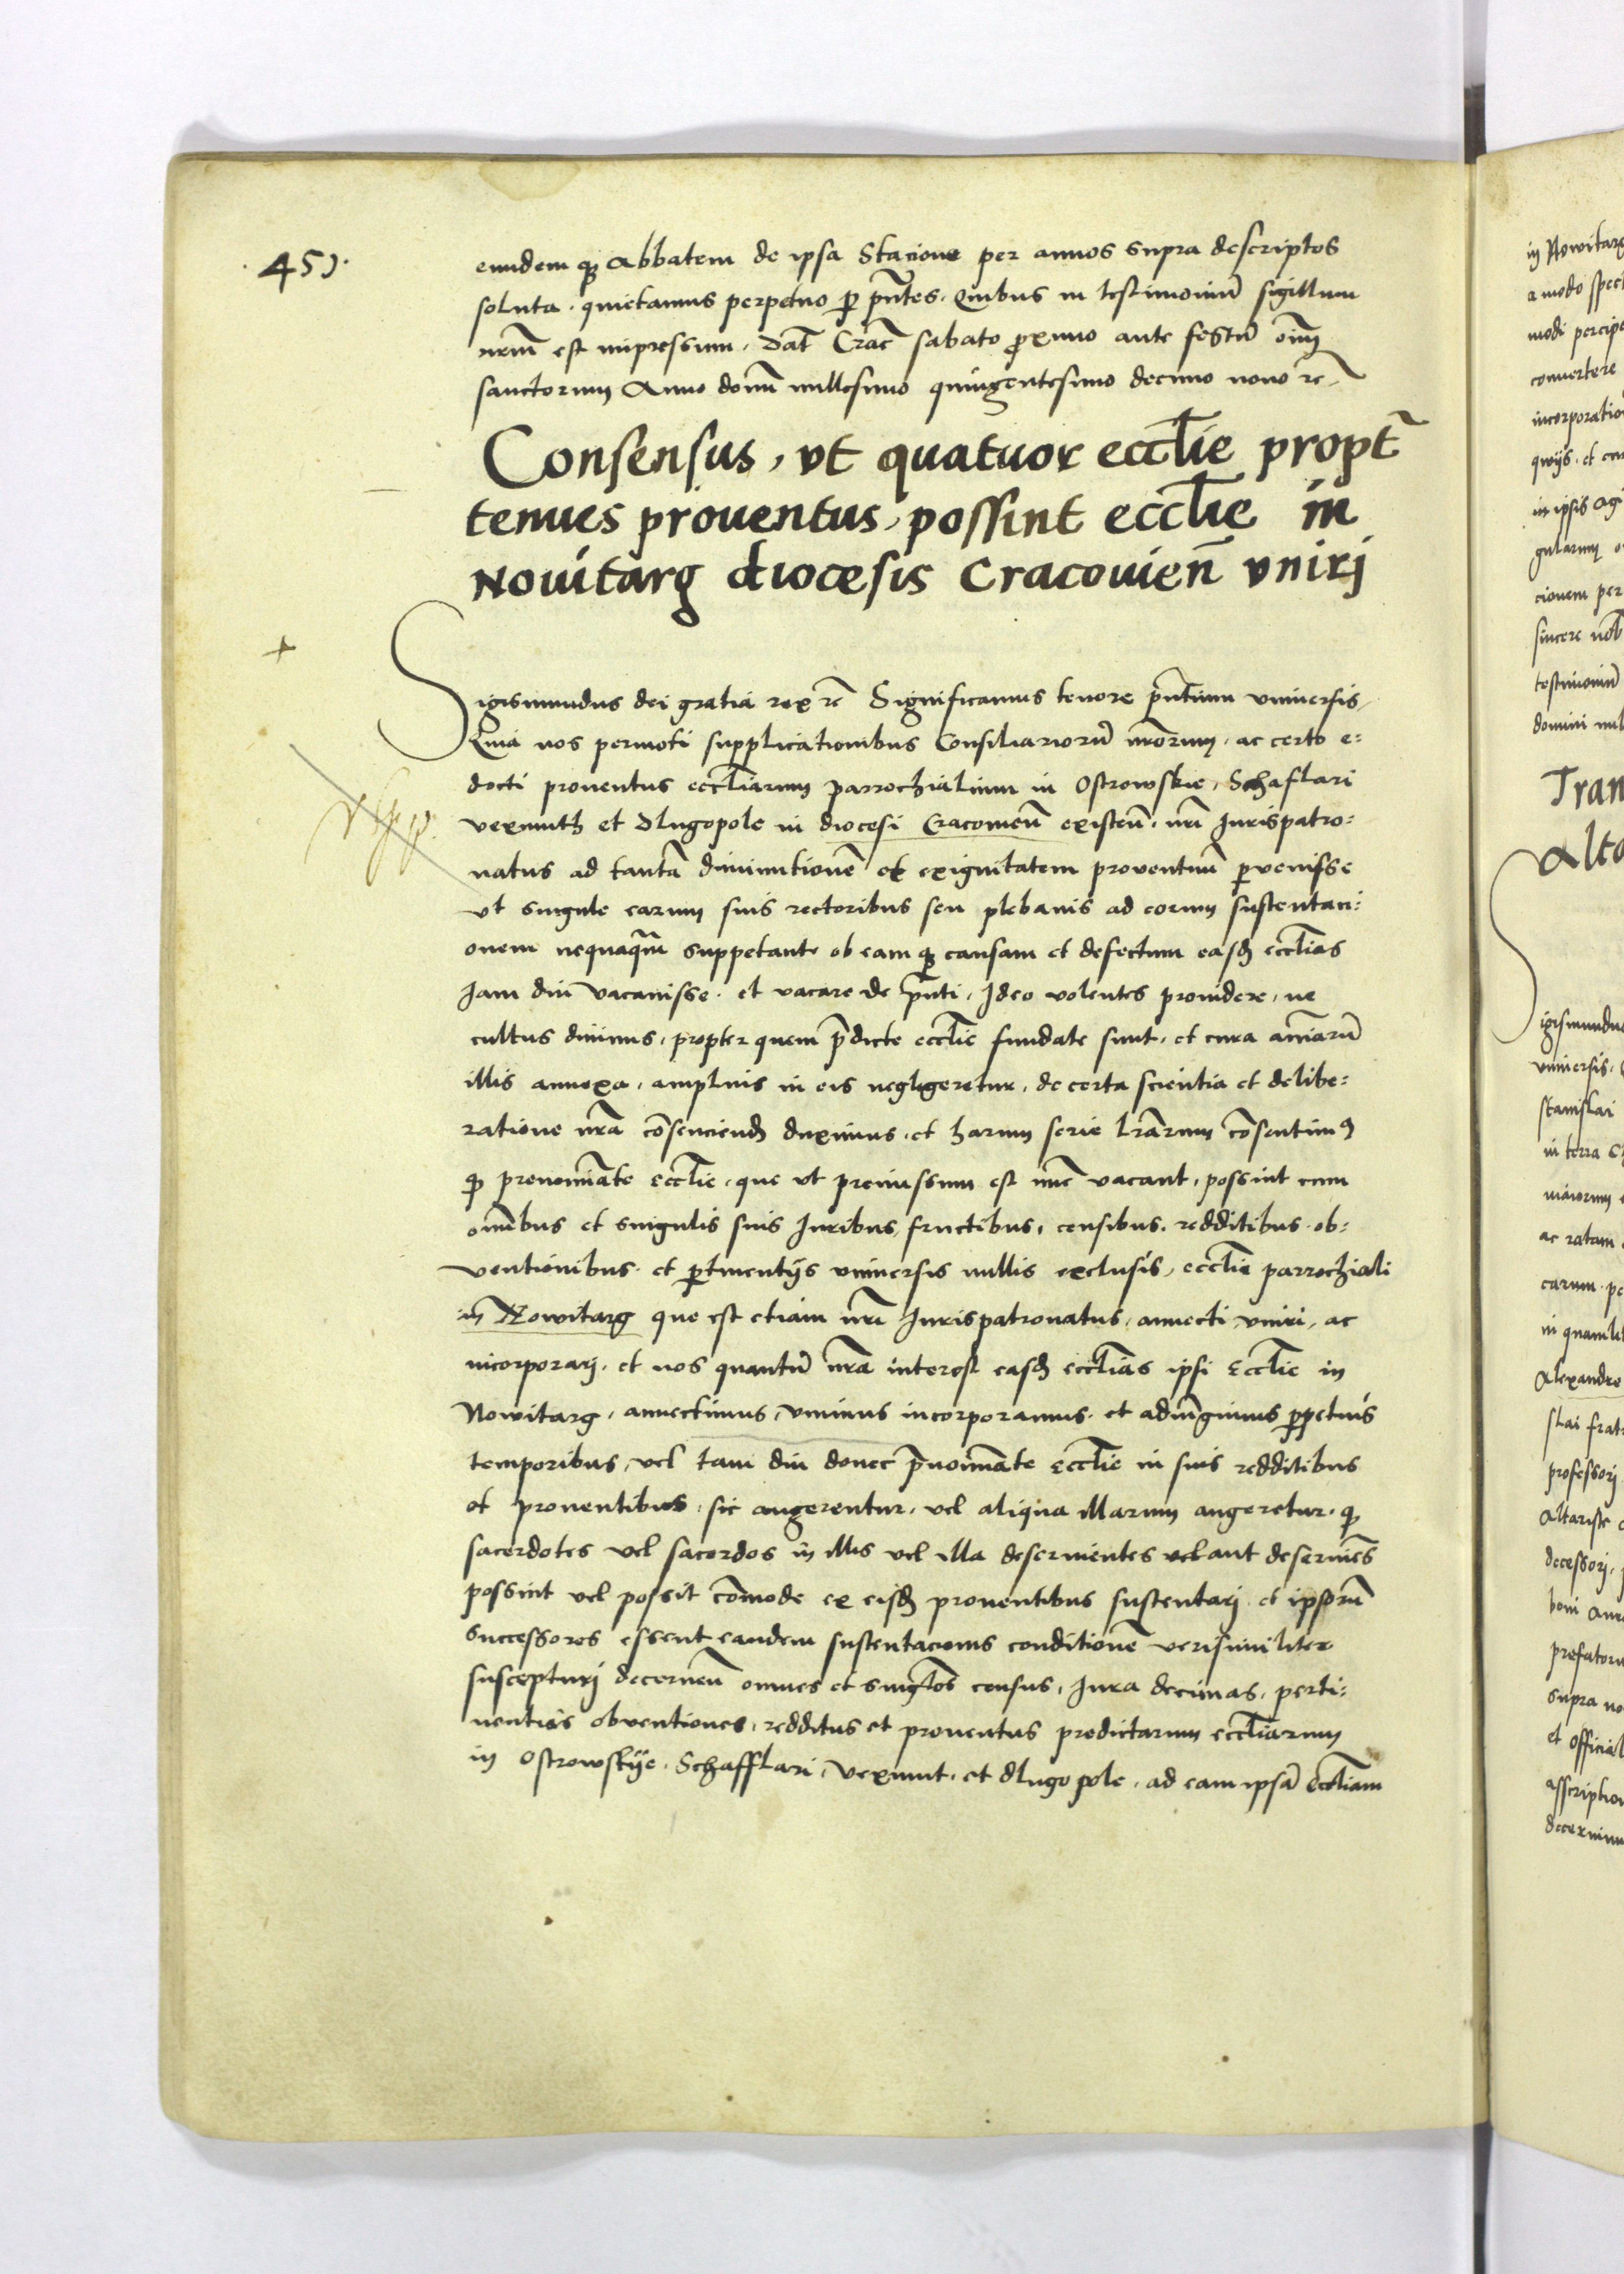 451.
eundem qȝ Abbatem de ipsa Stacione per annos supra descriptos
soluta. quietamus perpetuo p pñtes. Quibus in testimoniũ sigillum
nrm̃ est impressum. Dat̃ Crac̃ sabato p̃ximo ante festũ oim̃
sanctorum Anno domĩ millesimo quingentesimo decimo nono rc̃
Consensus, vt quatuor eccl̃ie propt̃
tenues prouentus, possint eccl̃ie in
Nouitarg diocesis Cracouieñ vniri
Sigismundus dei gratia rex rc̃ Significamus tenore pñtium vniuersis,
Quia nos permoti supplicationibus Consiliariorũ nrõrum, ac certo e=
docti prouentus eccl̃iarum parrochialium in Ostrowskie, Schaflari
vexmuth et Dlugopole in diocesi Cracouieñ existeñ, nrĩ Jurispatro=
natus ad tantã diminutionẽ et exiguitatem prouentuũ p̱uenisse
vt singule earum suis rectoribus seu plebanis ad eorum sustentaci=
onem nequaqũ suppetant, ob eam qȝ causam et defectum easd̃ eccl̃ias
Jam diu vacauisse. et vacare de pñti, Ideo volentes prouidere, ne
cultus diuinus, propter quem p̃dicte eccl̃ie fundate sunt, et cura aĩarũ
illis annexa, amplius in eis negligeretur, de certa scientia et delibe=
ratione nrã cõsenciend̃ duximus, et harum serie lrãrum cõsentimꝰ
qꝫ prenomĩate eccl̃ie, que vt premissum est nũc vacant, possint cum
omĩbus et singulis suis Juribus, fructibus, censibus, redditibus ob=
ventionibus. et p̱tinentijs vniuersis nullis exclusis, eccl̃ie parrochiali
in Nowitarg que est etiam nrĩ Jurispatronatus, annecti vniri, ac
incorporari. et nos quantũ nrã interest easd̃ eccl̃ias ipsi eccl̃ie in
Nowitarg, annectimus, vnimus incorporamus. et adiũgimus p̱petuis
temporibus, vel tam diu donec p̃nomĩate eccl̃ie in suis redditibus
et prouentibus, sic augerentur. vel aliqua illarum augeretur. qꝫ
sacerdotes vel sacerdos in illis vel illa deseruientes vel aut deseruiẽs
possint vel possit cõmode ex eisd̃ prouentibus sustentarj. et ipsorũ
successores essent eandem sustentacionis conditionẽ verisimiliter
suscepturj decerneñ omnes et singl̃os census, Jura decimas, perti=
nentias obventiones, redditus et prouentus predictarum eccl̃iarum
in Ostrowskije. Schafflari, vexmut. et dlugo pole, ad eam ipsã Eccl̃iam
in Nowitarg
a modo
modi
conuertere
in ipsis
cionem per
sincere
testimoniũ
domini
Tran
Alta
vniuersis
stanislai
in terra
maiorum
ac ratam
earum
Alexandro
slai
professori
Altariste
decessori
boni
supra no
et official